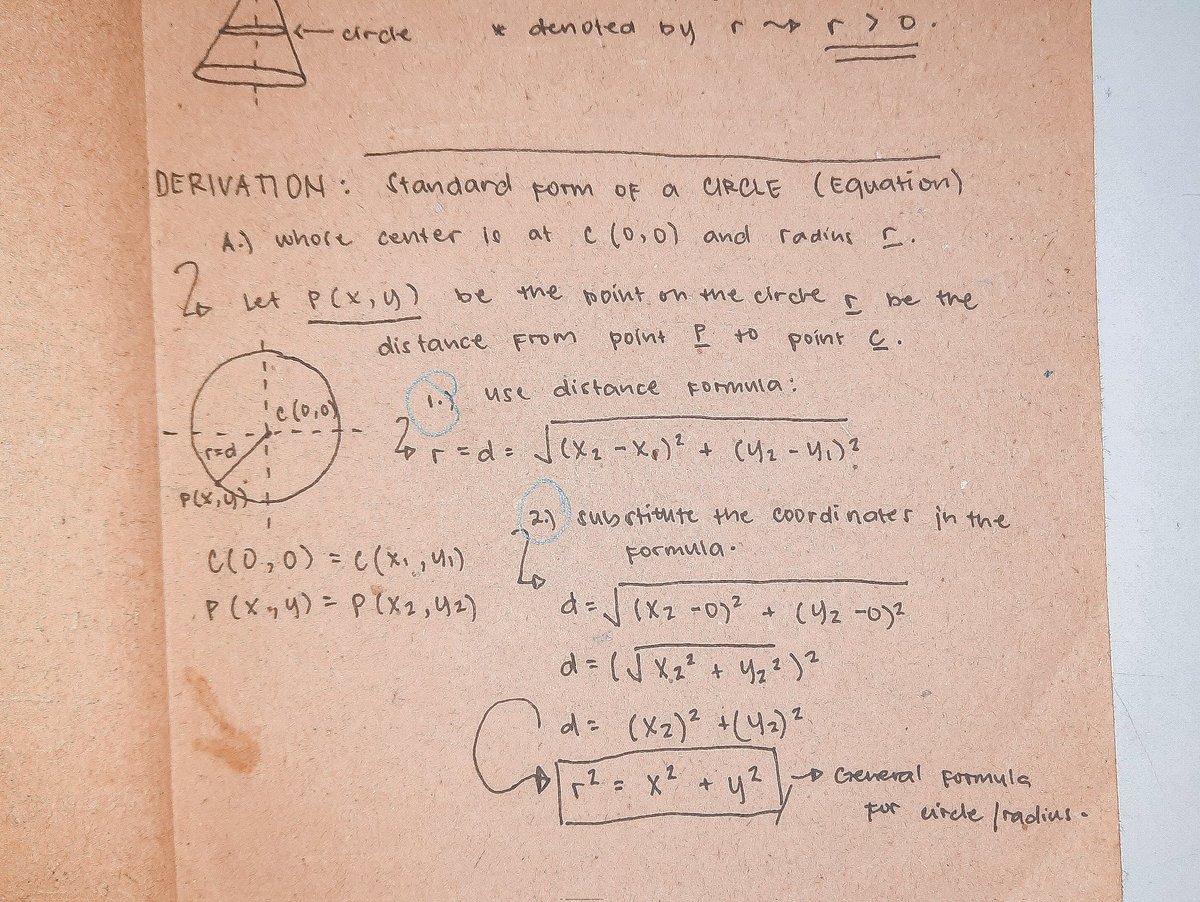 ← circle * denoted by r ⇝ r > 0.
DERIVATION: Standard form of a CIRCLE (Equation)
A.) whose center is at C (0,0) and radius r.
Let P(x,y) be the point on the circle r be the
distance from point P to point C.
1.) use distance formula:
r = d = √(x₂ - x₁)² + (y₂ - y₁)²
C(0,0)
r=d
P(x,y)
C(0,0) = C(x₁,y₁)
P(x,y) = P(x₂,y₂)
2.) substitute the coordinates in the
formula.
d = √(x₂ -0)² + (y₂ -0)²
d = (√x₂² + y₂²)²
d = (x₂)² + (y₂)²
r² = x² + y² → General formula
for circle/radius.